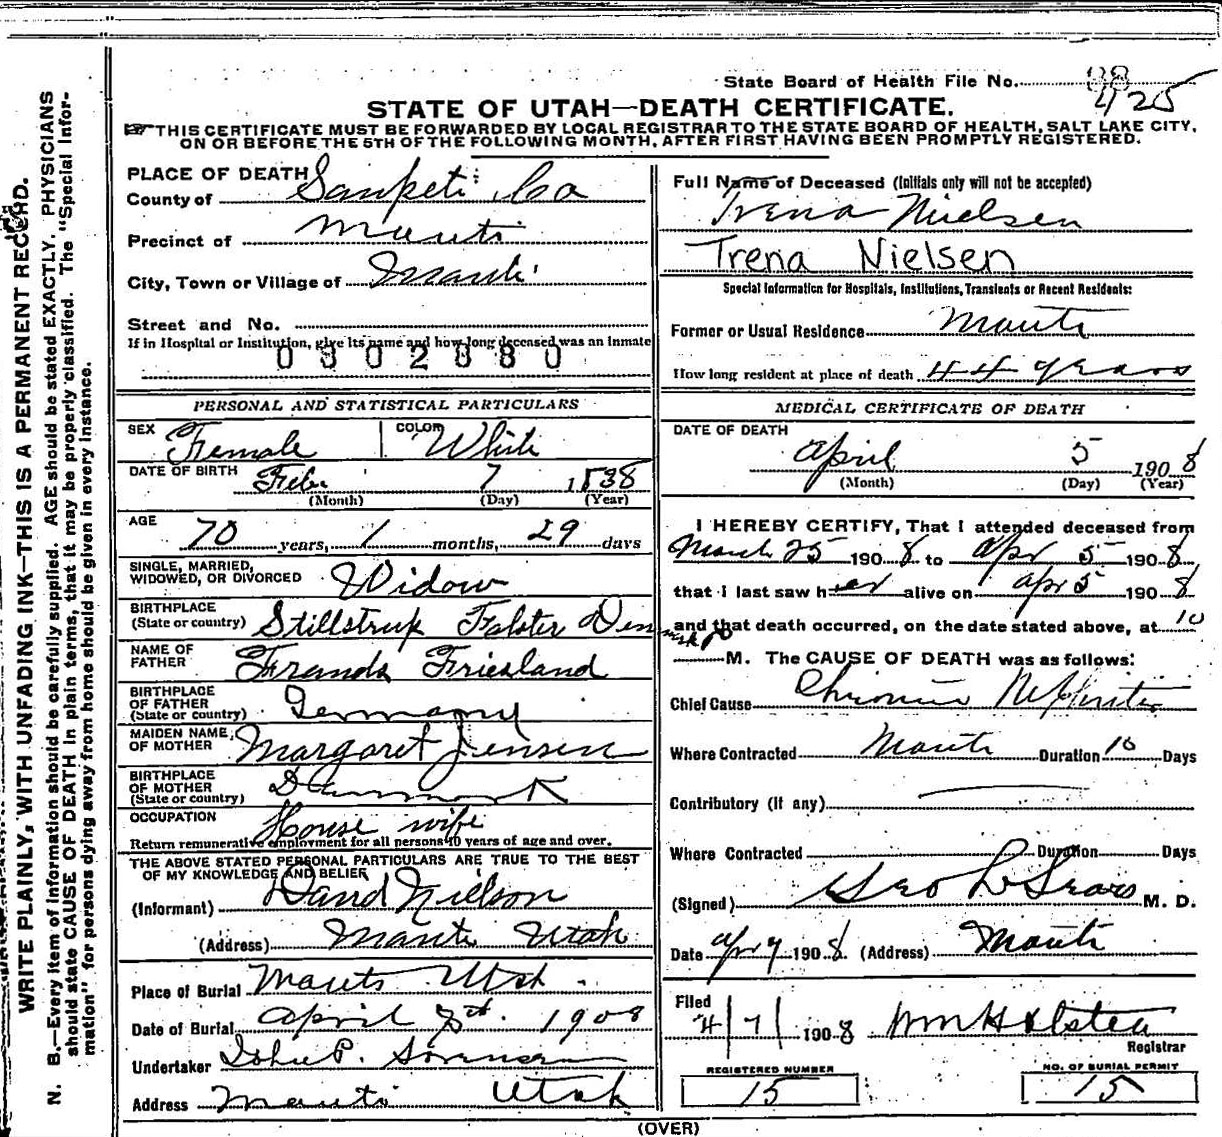 State Board of Health File No. 88
425
STATE OF UTAH—DEATH CERTIFICATE.
☞THIS CERTIFICATE MUST BE FORWARDED BY LOCAL REGISTRAR TO THE STATE BOARD OF HEALTH, SALT LAKE CITY,
ON OR BEFORE THE 5TH OF THE FOLLOWING MONTH, AFTER FIRST HAVING BEEN PROMPTLY REGISTERED.
WRITE PLAINLY, WITH UNFADING INK—THIS IS A PERMANENT RECORD.
N. B.—Every item of information should be carefully supplied. AGE should be stated EXACTLY. PHYSICIANS
should state CAUSE OF DEATH in plain terms, that it may be properly classified. The "Special Infor-
mation" for persons dying away from home should be given in every instance.
PLACE OF DEATH
County of Sanpete Co
Precinct of Manti
City, Town or Village of Manti
Street and No.
If in Hospital or Institution, give its name and how long deceased was an inmate
0302880
PERSONAL AND STATISTICAL PARTICULARS
SEX Female COLOR White
DATE OF BIRTH Feb. 7 1838
(Month) (Day) (Year)
AGE
70 years, 1 months, 29 days
SINGLE, MARRIED,
WIDOWED, OR DIVORCED Widow
BIRTHPLACE
(State or country) Stillstrup Falster Denmark
NAME OF
FATHER Frands Friesland
BIRTHPLACE
OF FATHER
(State or country) Germany
MAIDEN NAME
OF MOTHER Margaret Jensen
BIRTHPLACE
OF MOTHER
(State or country) Denmark
OCCUPATION House wife
Return remunerative employment for all persons 10 years of age and over.
THE ABOVE STATED PERSONAL PARTICULARS ARE TRUE TO THE BEST
OF MY KNOWLEDGE AND BELIEF
(Informant) David Nielson
(Address) Manti Utah
Place of Burial Manti Utah.
Date of Burial April 8th. 1908
Undertaker John P. Sorensen
Address Manti Utah
Full Name of Deceased (Initials only will not be accepted)
Trena Nielsen
Trena Nielsen
Special Information for Hospitals, Institutions, Transients or Recent Residents:
Former or Usual Residence Manti
How long resident at place of death 44 years
MEDICAL CERTIFICATE OF DEATH
DATE OF DEATH
April 5 1908
(Month) (Day) (Year)
I HEREBY CERTIFY, That I attended deceased from
March 25 1908 to Apr 5 1908
that I last saw her alive on Apr 5 1908
and that death occurred, on the date stated above, at 10
P M. The CAUSE OF DEATH was as follows:
Chief Cause Chronic Nephritis
Where Contracted Manti Duration 10 Days
Contributory (If any)
Where Contracted Duration Days
(Signed) Geo L Sears M. D.
Date Apr 7 1908 (Address) Manti
Filed
4/7/ 1908 Wm H Olsten
Registrar
REGISTERED NUMBER
15
NO. OF BURIAL PERMIT
15
(OVER)